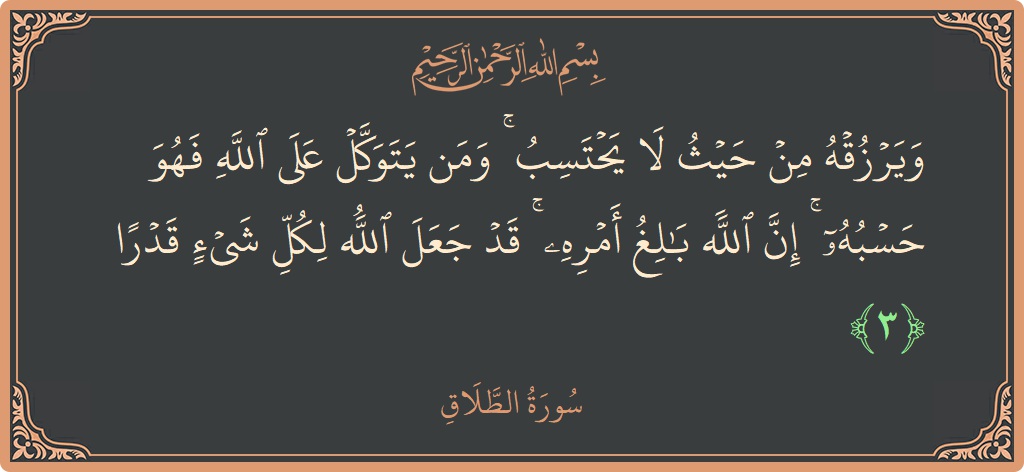 بِسْمِ اللهِ الرَّحْمٰنِ الرَّحِيْمِ
وَيَرۡزُقۡهُ مِنۡ حَيۡثُ لَا يَحۡتَسِبُ ۚ وَمَن يَتَوَكَّلۡ عَلَى ٱللَّهِ فَهُوَ
حَسۡبُهُۥٓ ۚ إِنَّ ٱللَّهَ بَٰلِغُ أَمۡرِهِۦ ۚ قَدۡ جَعَلَ ٱللَّهُ لِكُلِّ شَيۡءٍ قَدۡرًا
﴿٣﴾
سُورَةُ الطَّلَاقِ